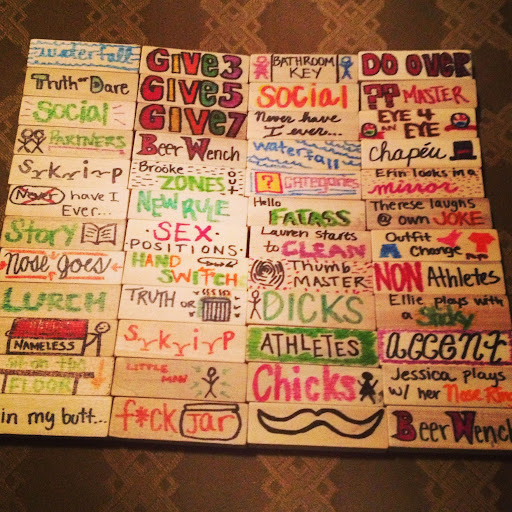 waterfall
Truth or Dare
Social
PARTNERS
S k i p
Never have I
Ever...
Story
Nose Goes
LURCH
NAMELESS
in my butt...
GIVE 3
GIVE 5
GIVE 7
Beer Wench
Brooke
ZONES OUT
NEW RULE
SEX
POSITIONS
HAND
SWITCH
TRUTH OR
S k i p
LITTLE
MAN
f*ck JAR
BATHROOM
KEY
SOCIAL
Never have
I ever...
waterfall
? CATEGORIES
Hello
FATASS
Lauren starts
to CLEAN
Thumb
MASTER
DICKS
ATHLETES
Chicks
DO OVER
?? MASTER
EYE 4
AN EYE
Chapéu
Erin looks in a
mirror
Therese laughs
@ own JOKE
Outfit
Change
NON Athletes
Ellie plays with
a
accent
Jessica plays
w/ her Nose Ring
Beer Wench